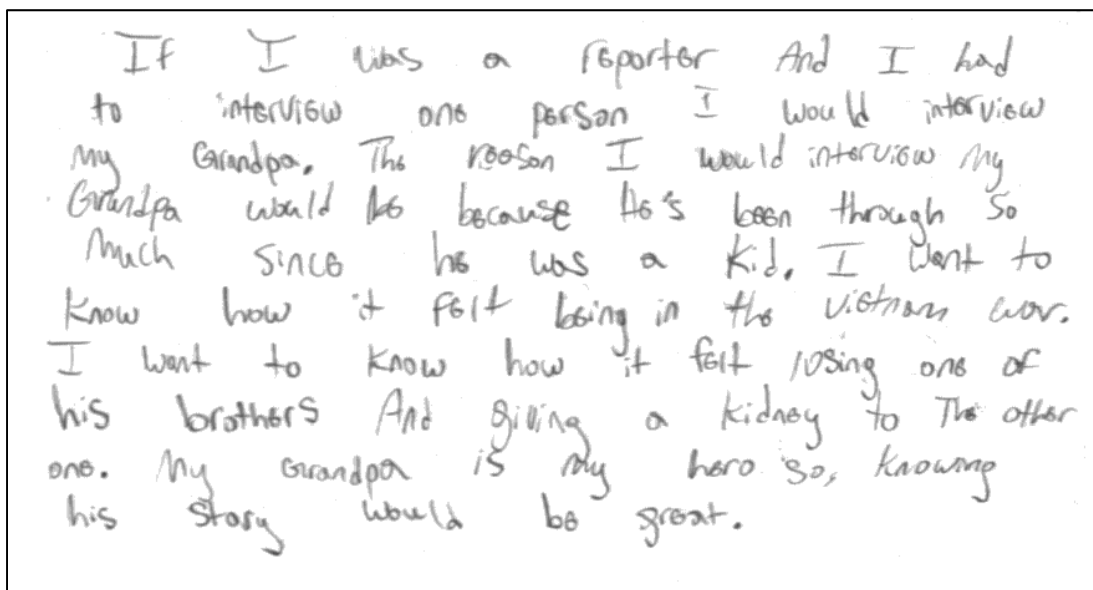 If I was a reporter And I had
to interview one person I would interview
My Grandpa. The reason I would interview My
Grandpa would be because He's been through so
Much since he was a kid. I want to
know how it felt being in the vietnam war.
I want to know how it felt losing one of
his brothers And giving a kidney to The other
one. My Grandpa is my hero so, knowing
his story would be great.